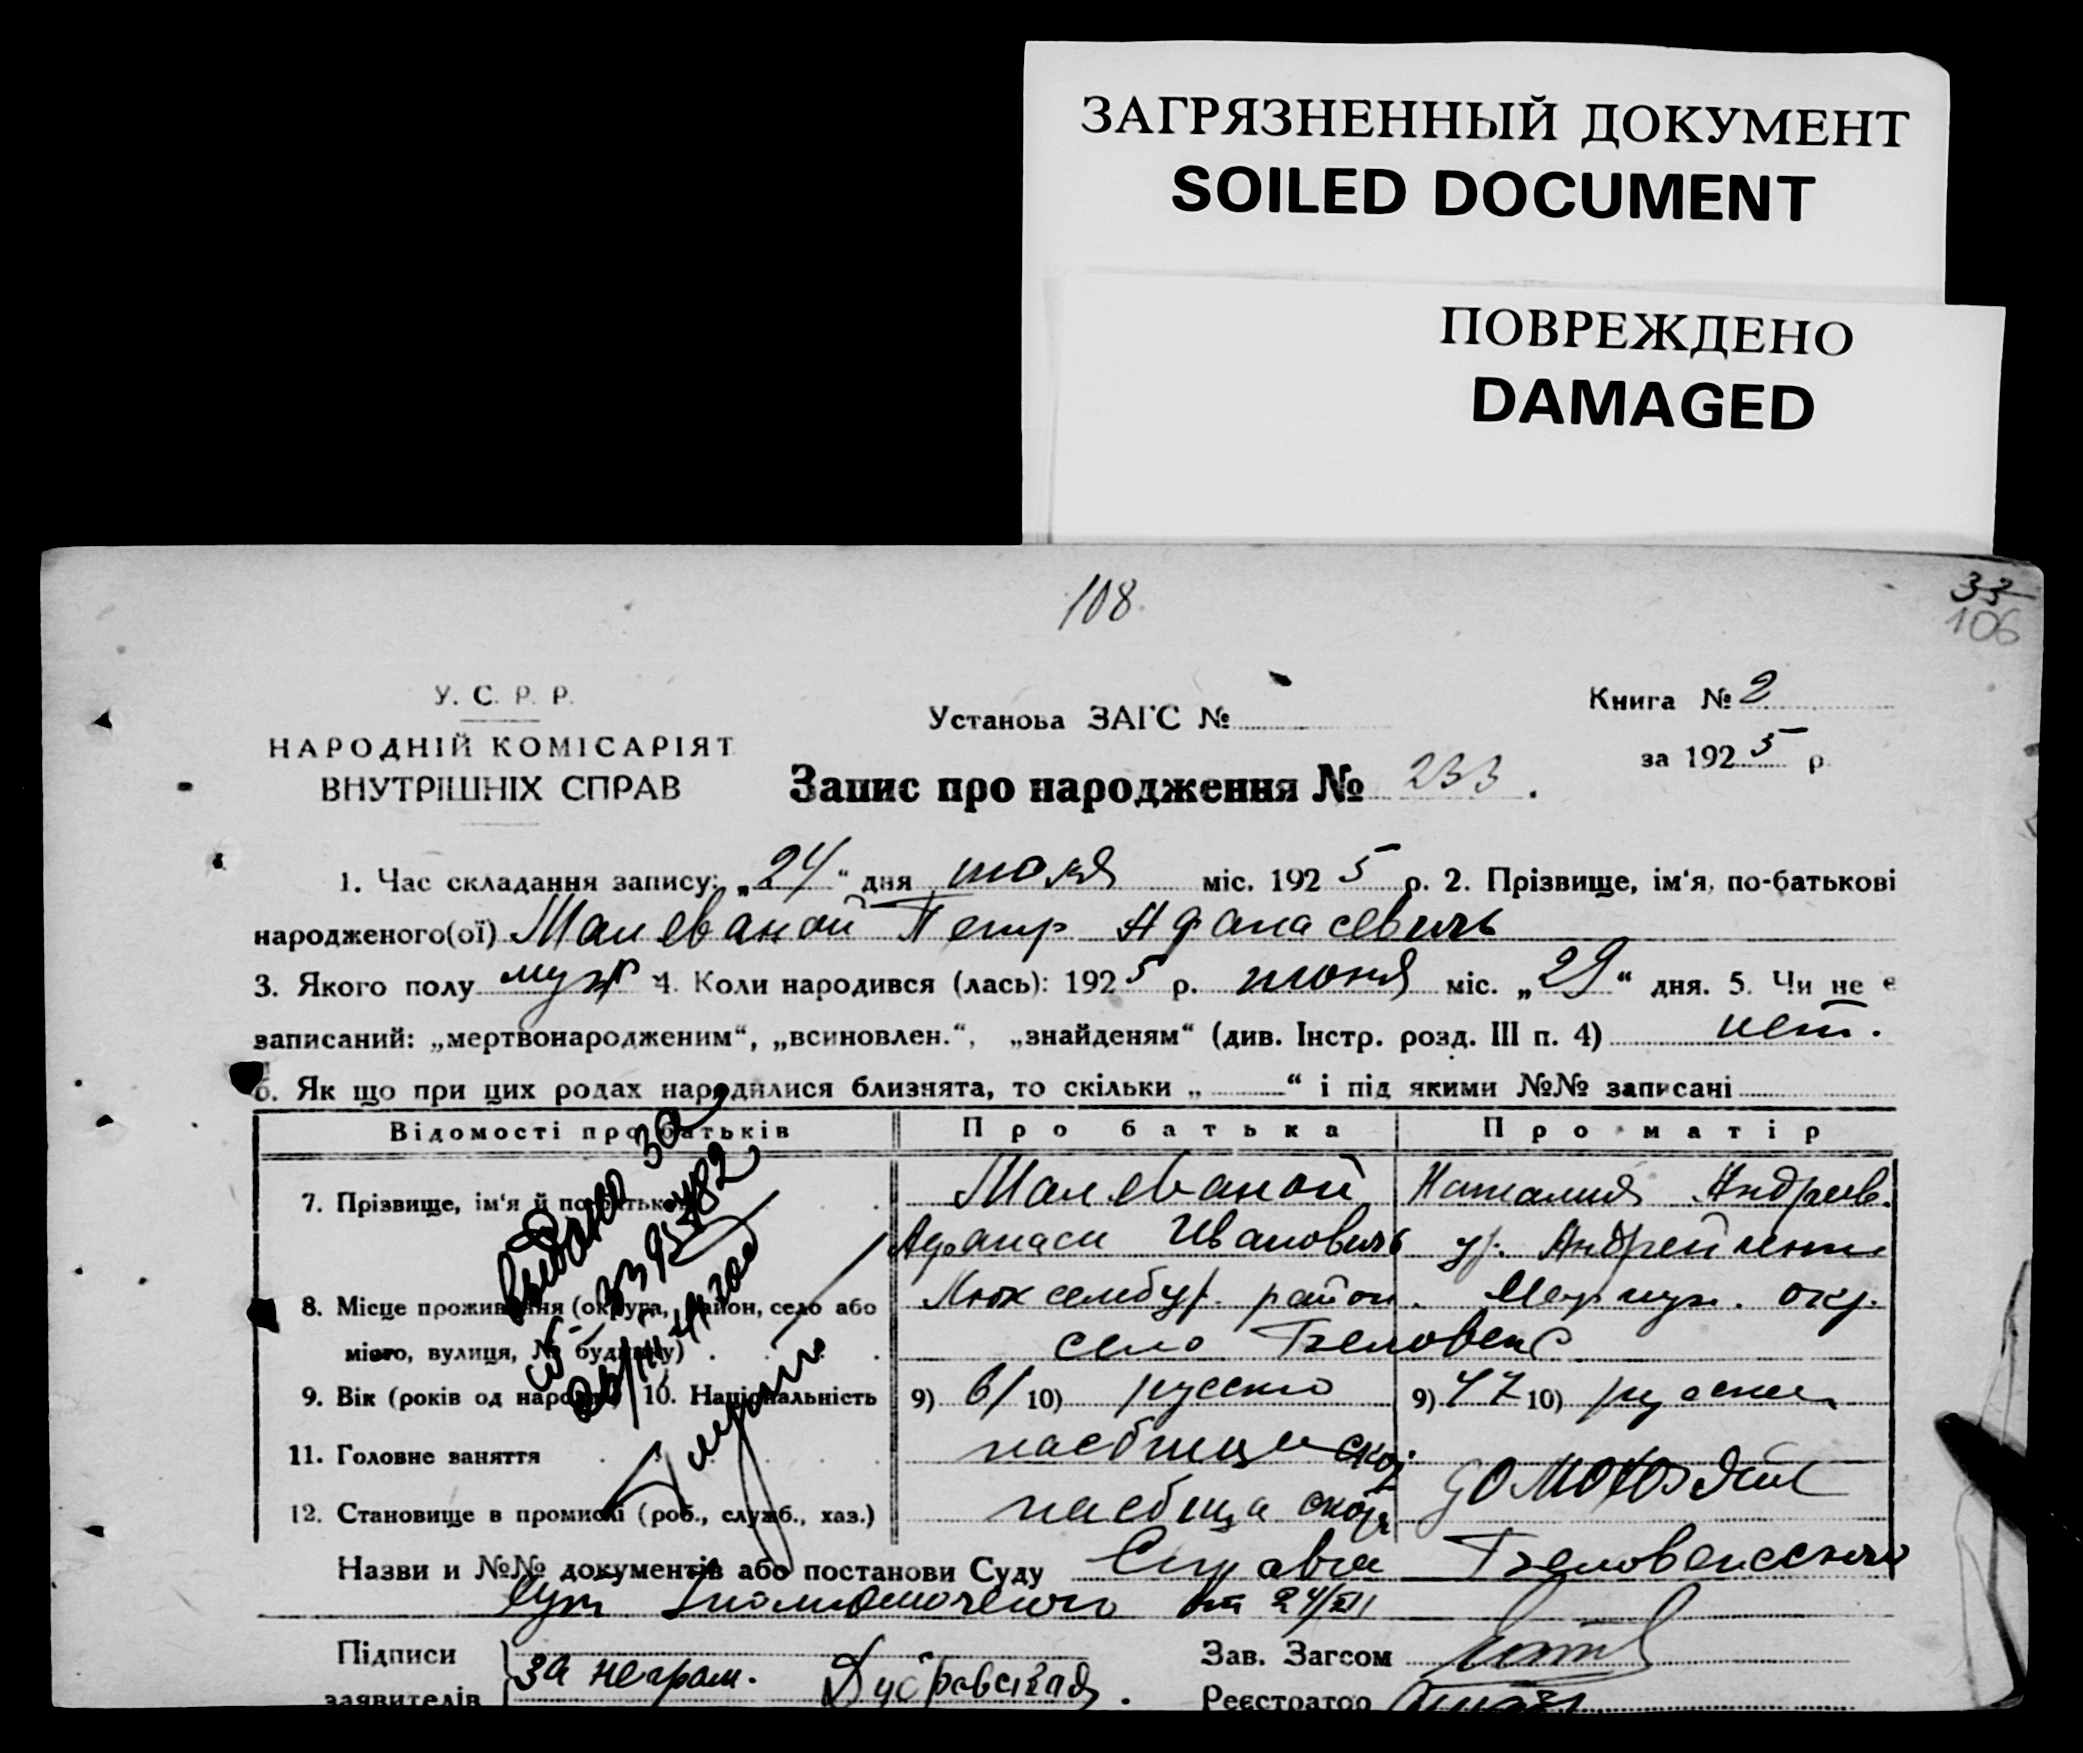 ЗАГРЯЗНЕННЫЙ ДОКУМЕНТ
SOILED DOCUMENT
ПОВРЕЖДЕНО
DAMAGED
108
33
106
У. С. Р. Р.
НАРОДНІЙ КОМІСАРІЯТ
ВНУТРІШНІХ СПРАВ
Установа ЗАГС №
Книга № 2
за 1925 р
Запис про народження № 233.
1. Час складання запису: „24“ дня июля міс. 1925 р. 2. Прізвище, ім'я, по-батькові
народженого(ої) Малеваной Петр Афанасевичъ
3. Якого полу муж 4. Коли народився (лась): 1925 р. июня міс. „29“ дня. 5. Чи не є
записаний: „мертвонародженим“, „всиновлен.“, „знайденям“ (див. Інстр. розд. III п. 4) нет.
6. Як що при цих родах народилися близнята, то скільки „ “ і під якими №№ записані
Відомості про батьків Про батька Про матір
7. Прізвище, ім'я й по батькові Малеваной Наталия Андреев.
Афанаси Ивановичъ ур. Андрейченко
8. Місце проживання (округа, район, село або Люксембур. район. Мариуп. окр.
місто, вулиця, № будинку) село
9. Вік (років од народж.) 10. Національність 9) 61 10) руско 9) 47 10) руская
11. Головне заняття
12. Становище в промислі (роб., служб., хаз.) домохозяйк
выдано за
Назви и №№ документів або постанови Суду Справка
от 24/VII
Підписи за неграм. Дубровская.
заявителів
Зав. Загсом
Реєстратор